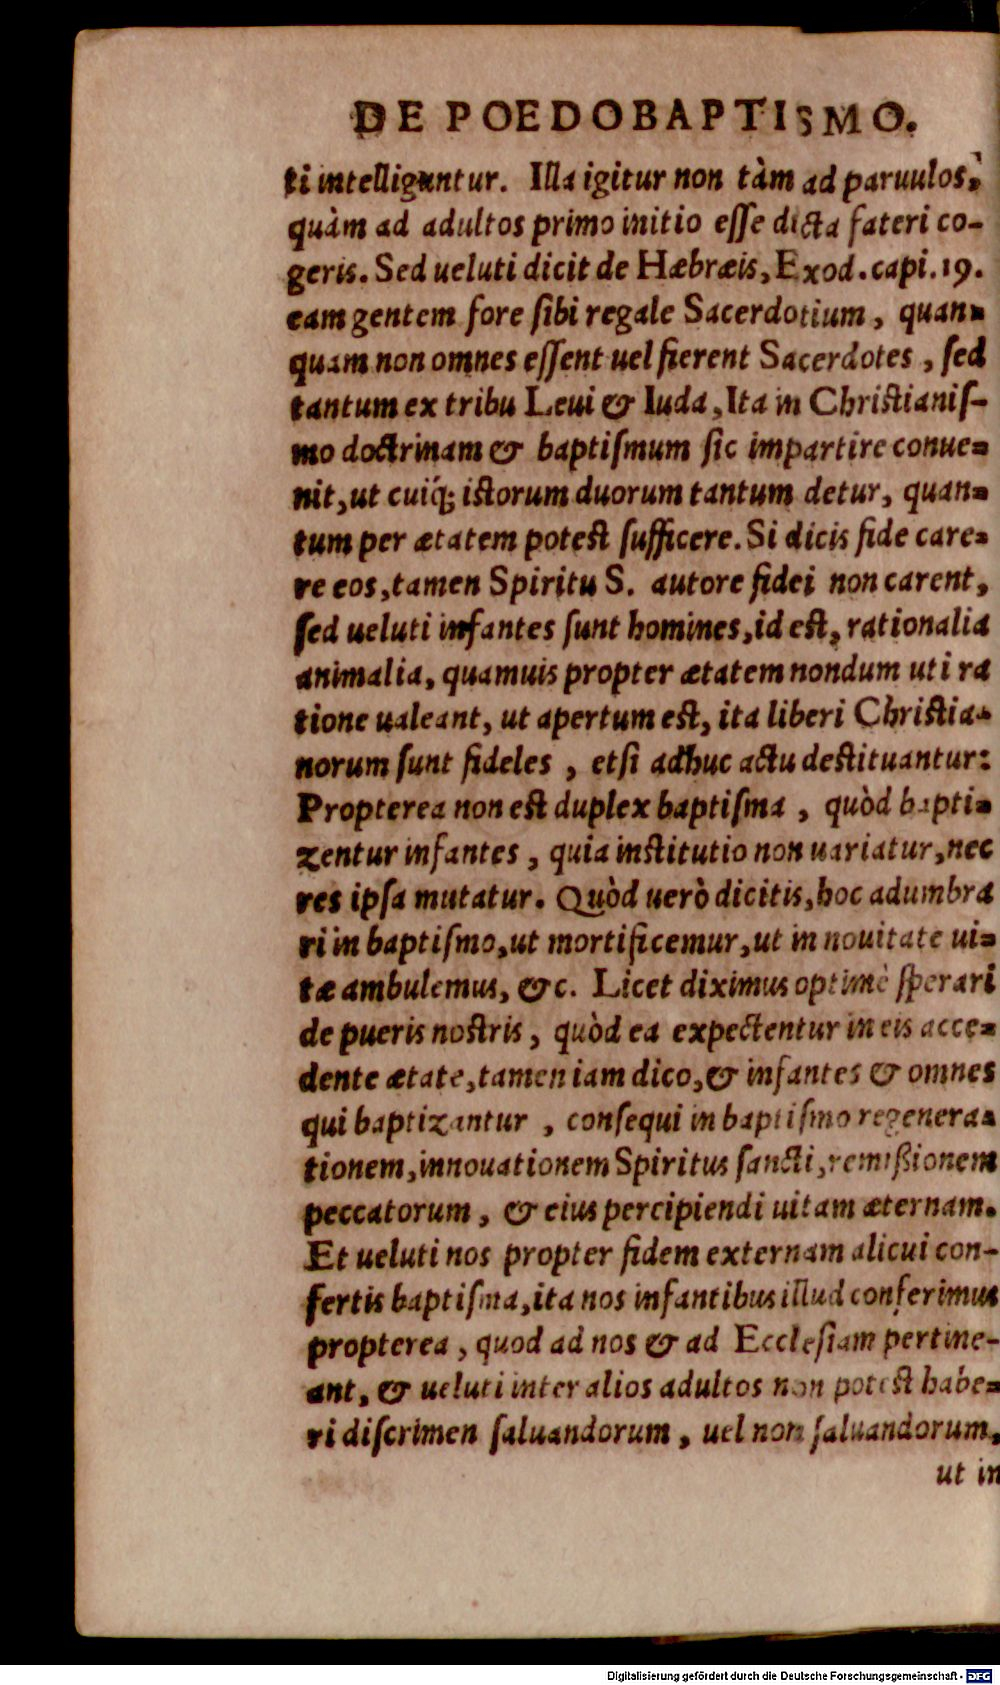 DE POEDOBAPTISMO.
ti intelliguntur. Illa igitur non tàm ad paruulos,
quàm ad adultos primo initio eſſe dicta fateri co-
geris. Sed ueluti dicit de Hæbræis, Exod. capi. 19.
eam gentem fore ſibi regale Sacerdotium, quan-
quam non omnes eſſent uel fierent Sacerdotes, ſed
tantum ex tribu Leui & Iuda, Ita in Chriſtianiſ-
mo doctrinam & baptiſmum ſic impartire conue-
nit, ut cuiq́; iſtorum duorum tantum detur, quan-
tum per ætatem poteſt ſufficere. Si dicis fide care-
re eos, tamen Spiritu S. autore fidei non carent,
ſed ueluti infantes ſunt homines, id eſt, rationalia
animalia, quamuis propter ætatem nondum uti ra
tione ualeant, ut apertum eſt, ita liberi Chriſtia-
norum ſunt fideles, etſi adhuc actu deſtituantur:
Propterea non eſt duplex baptiſma, quòd bapti-
zentur infantes, quia inſtitutio non uariatur, nec
res ipſa mutatur. Quòd uerò dicitis, hoc adumbra
ri in baptiſmo, ut mortificemur, ut in nouitate ui-
tæ ambulemus, &c. Licet diximus optimè ſperari
de pueris noſtris, quòd ea expectentur in eis acce-
dente ætate, tamen iam dico, & infantes & omnes
qui baptizantur, conſequi in baptiſmo regenera-
tionem, innouationem Spiritus ſancti, remißionem
peccatorum, & eius percipiendi uitam æternam.
Et ueluti nos propter fidem externam alicui con-
fertis baptiſma, ita nos infantibus illud conferimus
propterea, quod ad nos & ad Eccleſiam pertine-
ant, & ueluti inter alios adultos non poteſt habe-
ri diſcrimen ſaluandorum, uel non ſaluandorum,
ut in
Digitalisierung gefördert durch die Deutsche Forschungsgemeinschaft - DFG